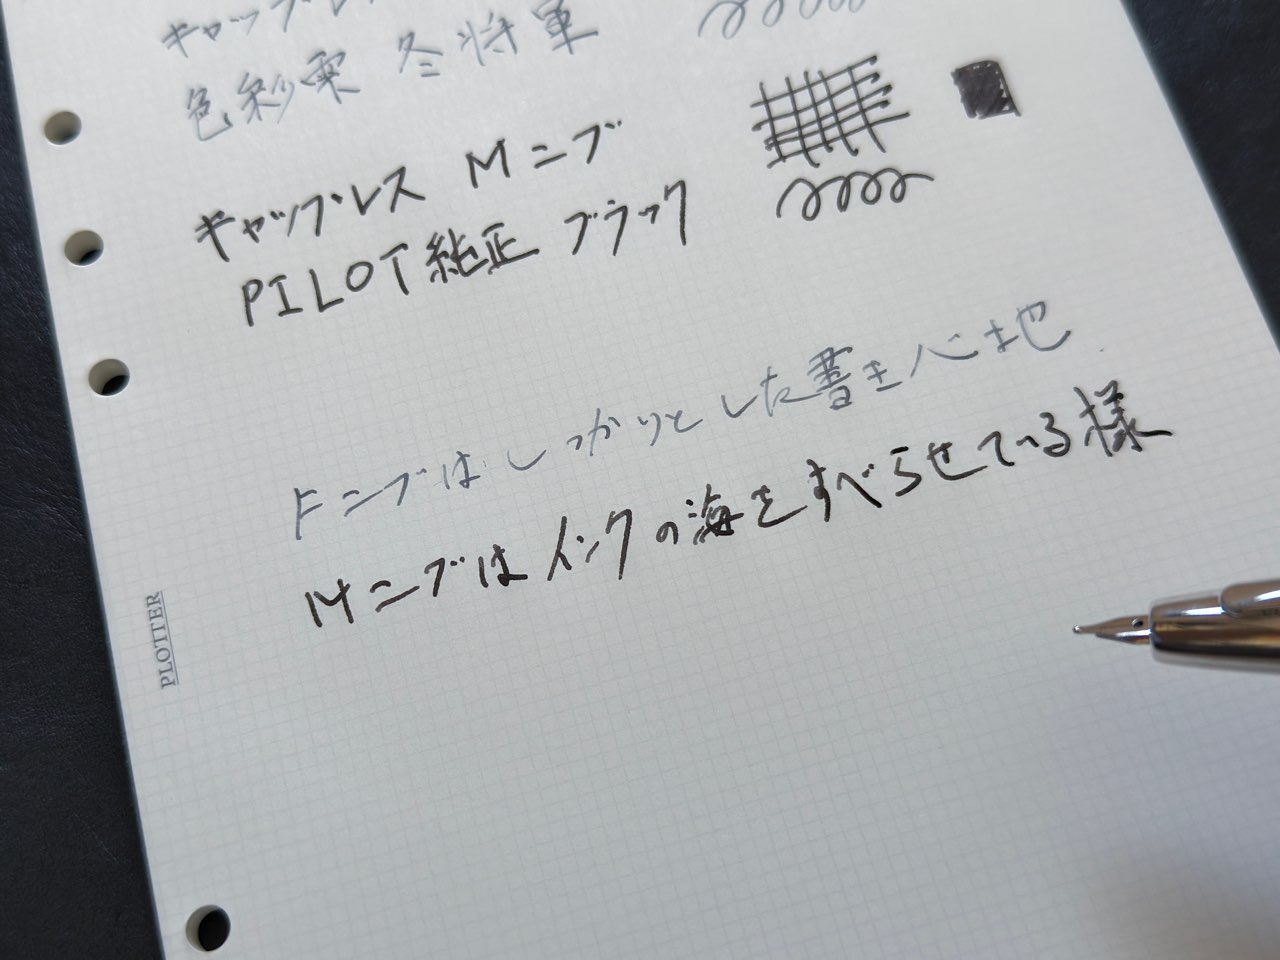 キャップレ
色彩雫 冬将軍
キャップレス Mニブ
PILOT純正 ブラック
Fニブは しっかりとした書き心地
Mニブは インクの海をすべらせている様
PLOTTER